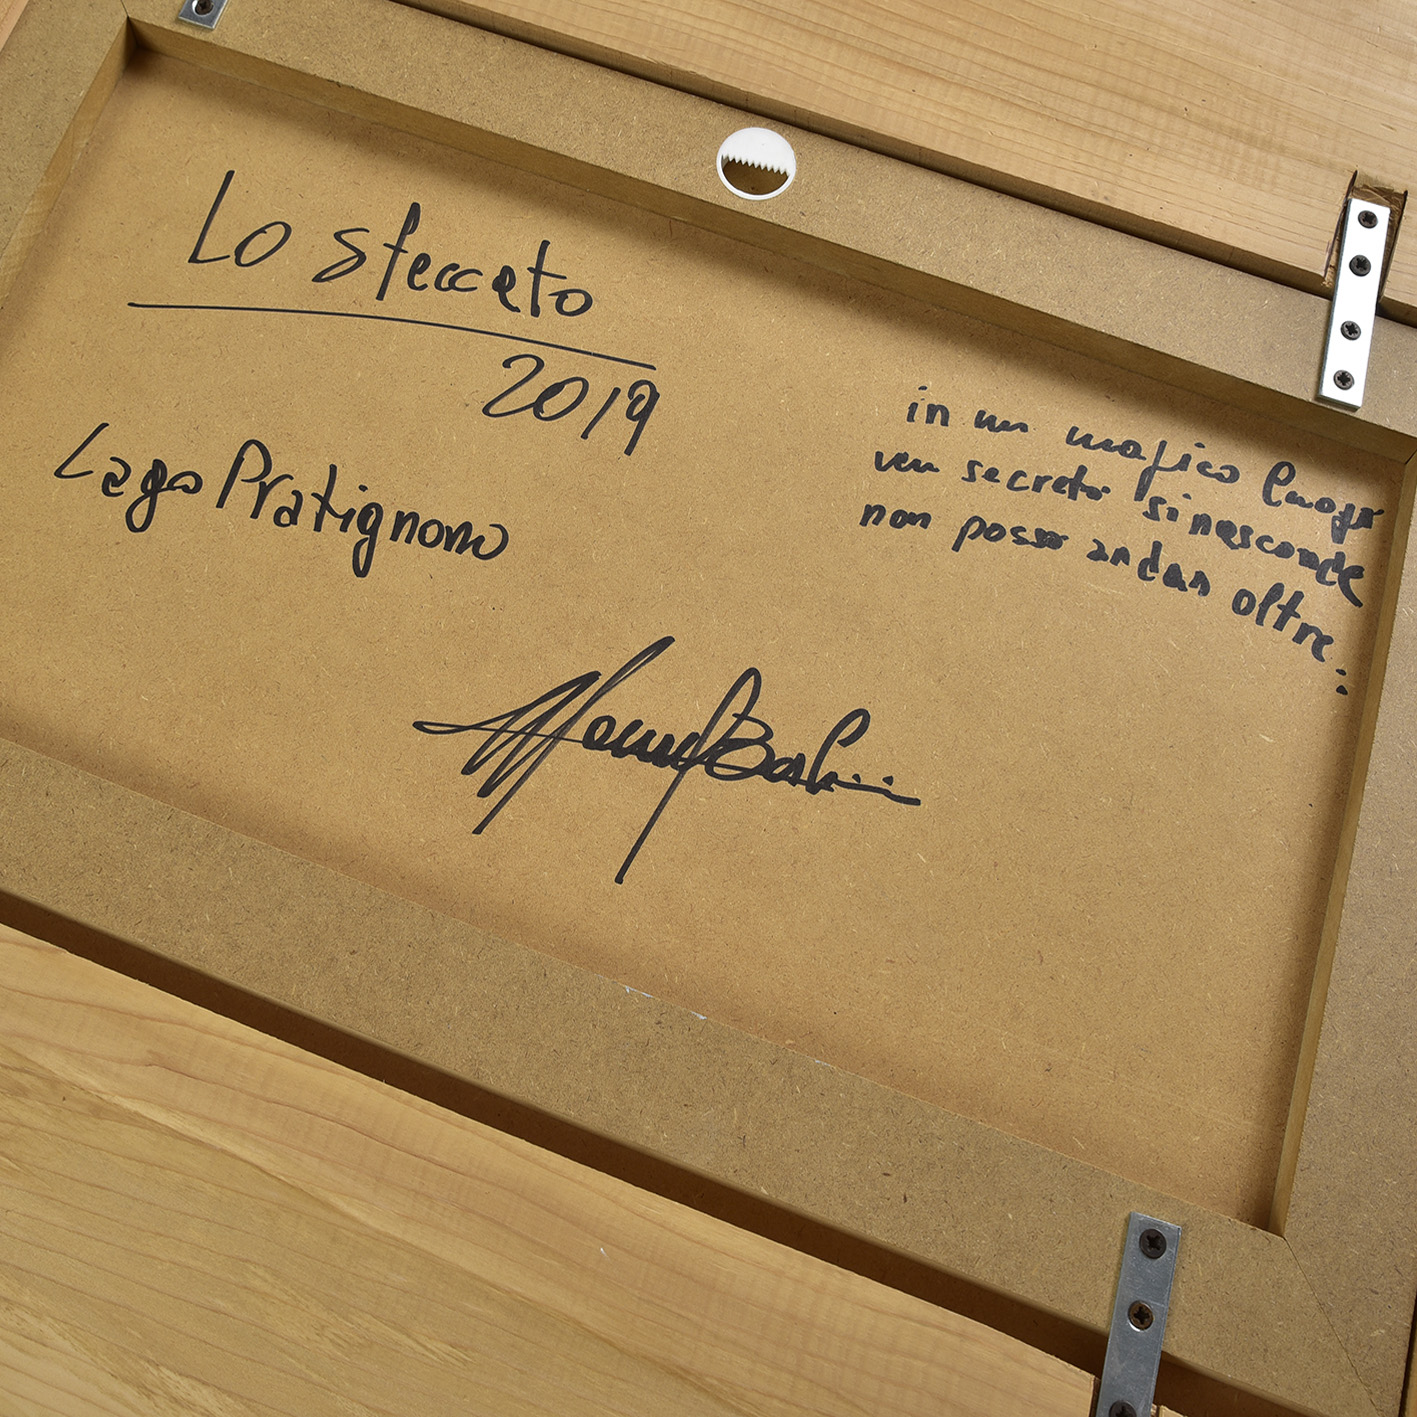 Lo steccato
2019
Lago Pratignano
in un magico luogo
un secreto si nasconde
non posso andar oltre :